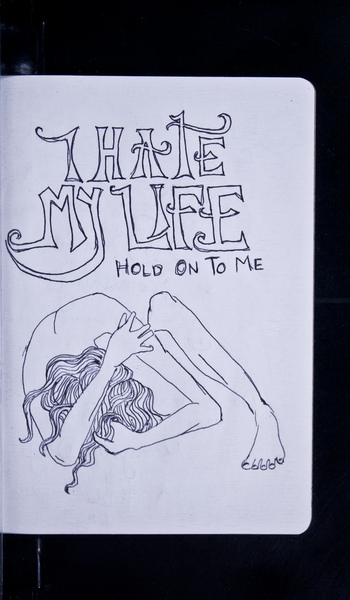 I HATE
MY LIFE
HOLD ON TO ME